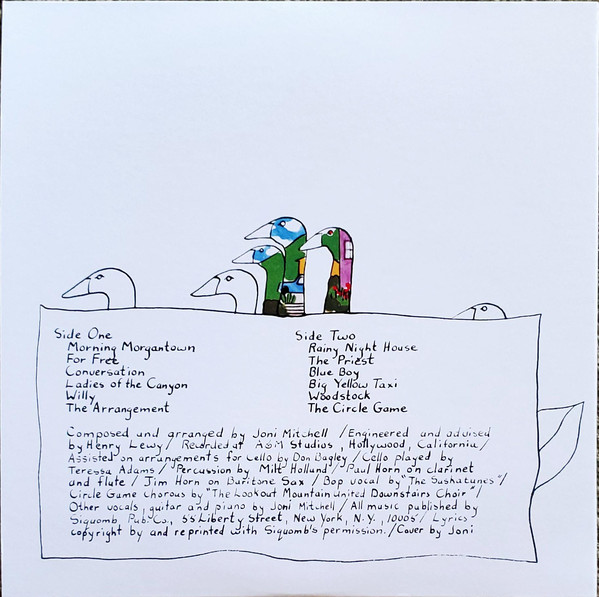 Side One
Morning Morgantown
For Free
Conversation
Ladies of the Canyon
Willy
The Arrangement
Side Two
Rainy Night House
The Priest
Blue Boy
Big Yellow Taxi
Woodstock
The Circle Game
Composed and arranged by Joni Mitchell / Engineered and advised
by Henry Lewy / Recorded at A&M Studios, Hollywood, California /
Assisted on arrangements for cello by Don Bagley / Cello played by
Teressa Adams / Percussion by Milt Holland / Paul Horn on clarinet
and flute / Jim Horn on Baritone Sax / Bop vocal by "The Saskatunes" /
Circle Game chorous by "The Lookout Mountain United Downstairs Choir" /
Other vocals, guitar and piano by Joni Mitchell / All music published by
Siquomb Pub. Co., 55 Liberty Street, New York, N.Y., 10005 / Lyrics
copyright by and reprinted with Siquomb's permission. / Cover by Joni